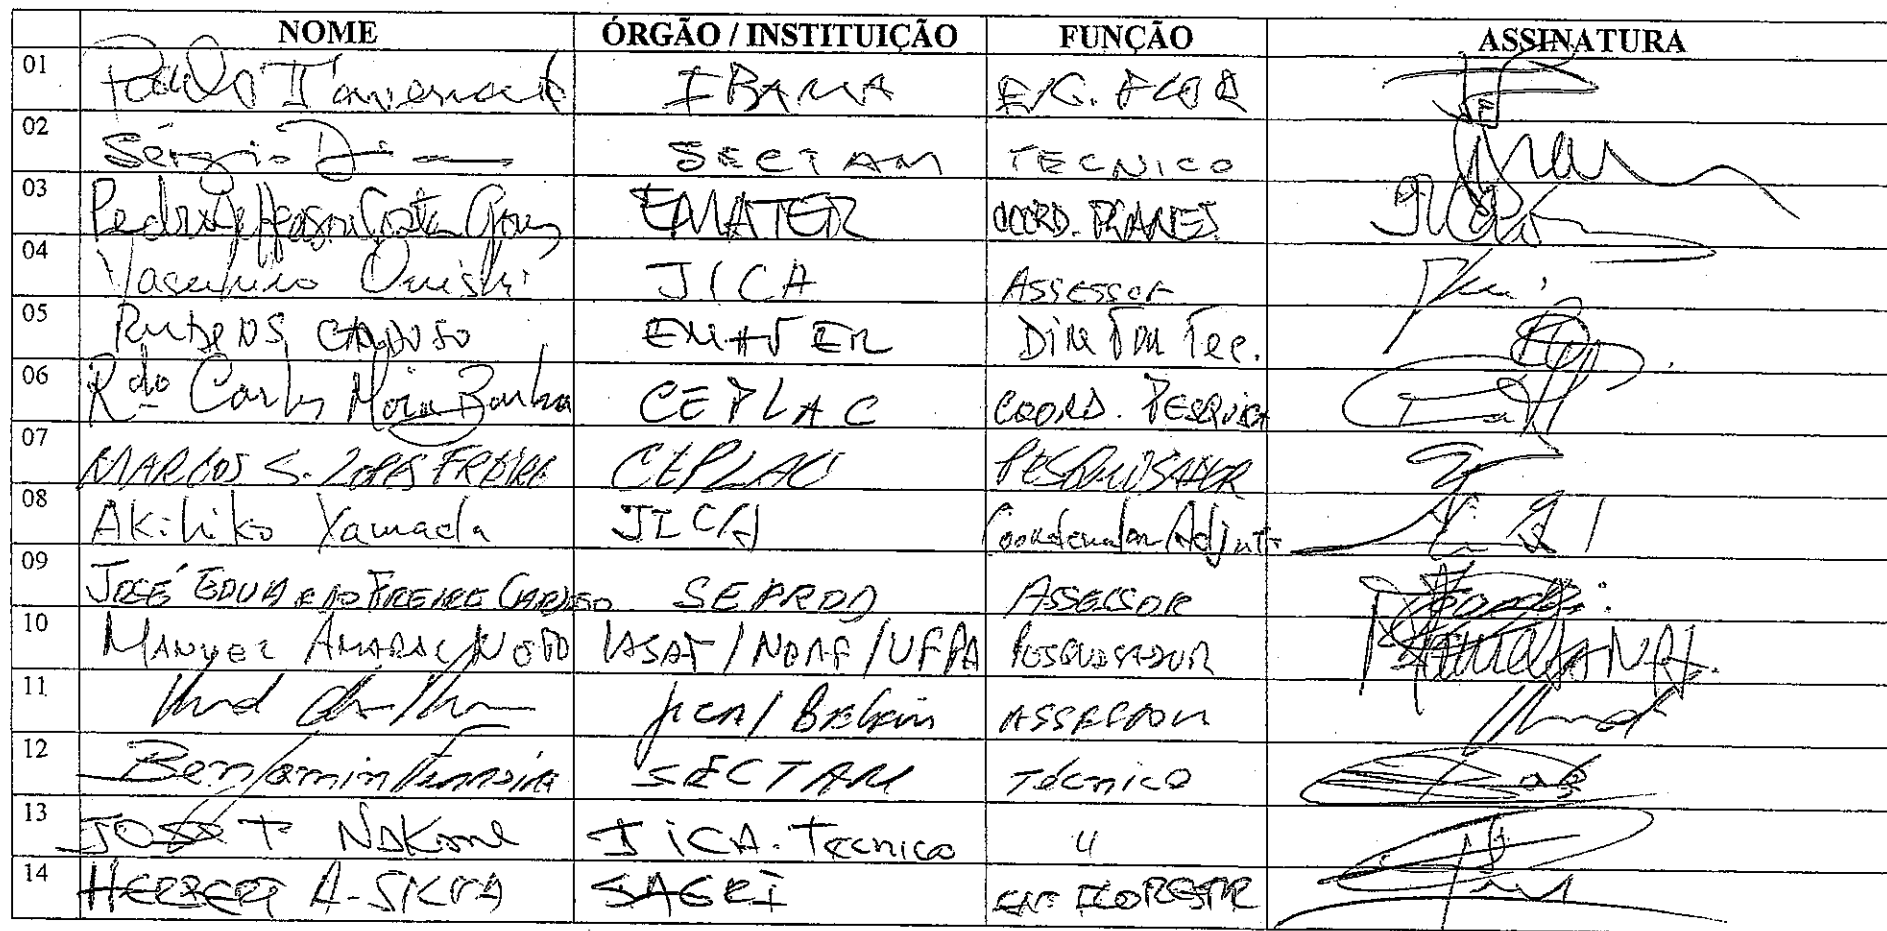 NOME ÓRGÃO / INSTITUIÇÃO FUNÇÃO ASSINATURA
01 Paulo IBAMA ENG. FLOR
02 Sérgio SECTAM TECNICO
03 Pedro Jefferson Costa Gomes EMATER COORD. PLANEJ.
04 Yasuhiro Onishi JICA ASSESSOR
05 RUBENS CARDOSO EMATER DIRETOR TEC.
06 Rdo Carlos Moia Barbosa CEPLAC COORD. PESQUISA
07 MARCOS S. LOPES FREIRE CEPLAC PESQUISADOR
08 Akihiko Yamada JICA Coordenador Adjunto
09 JOSÉ EDUARDO FREIRE CARDOSO SEPROD ASSESSOR
10 MANUEL AMARAL NETO IASAT / NEAF / UFPA PESQUISADOR
11 JICA / Belém ASSESSOR
12 Benjamin Ferreira SECTAM Técnico
13 JOSE T. Nakane JICA. Tecnico 〃
14 HERBERT A. SILVA SAGRI ENG. FLORESTAL